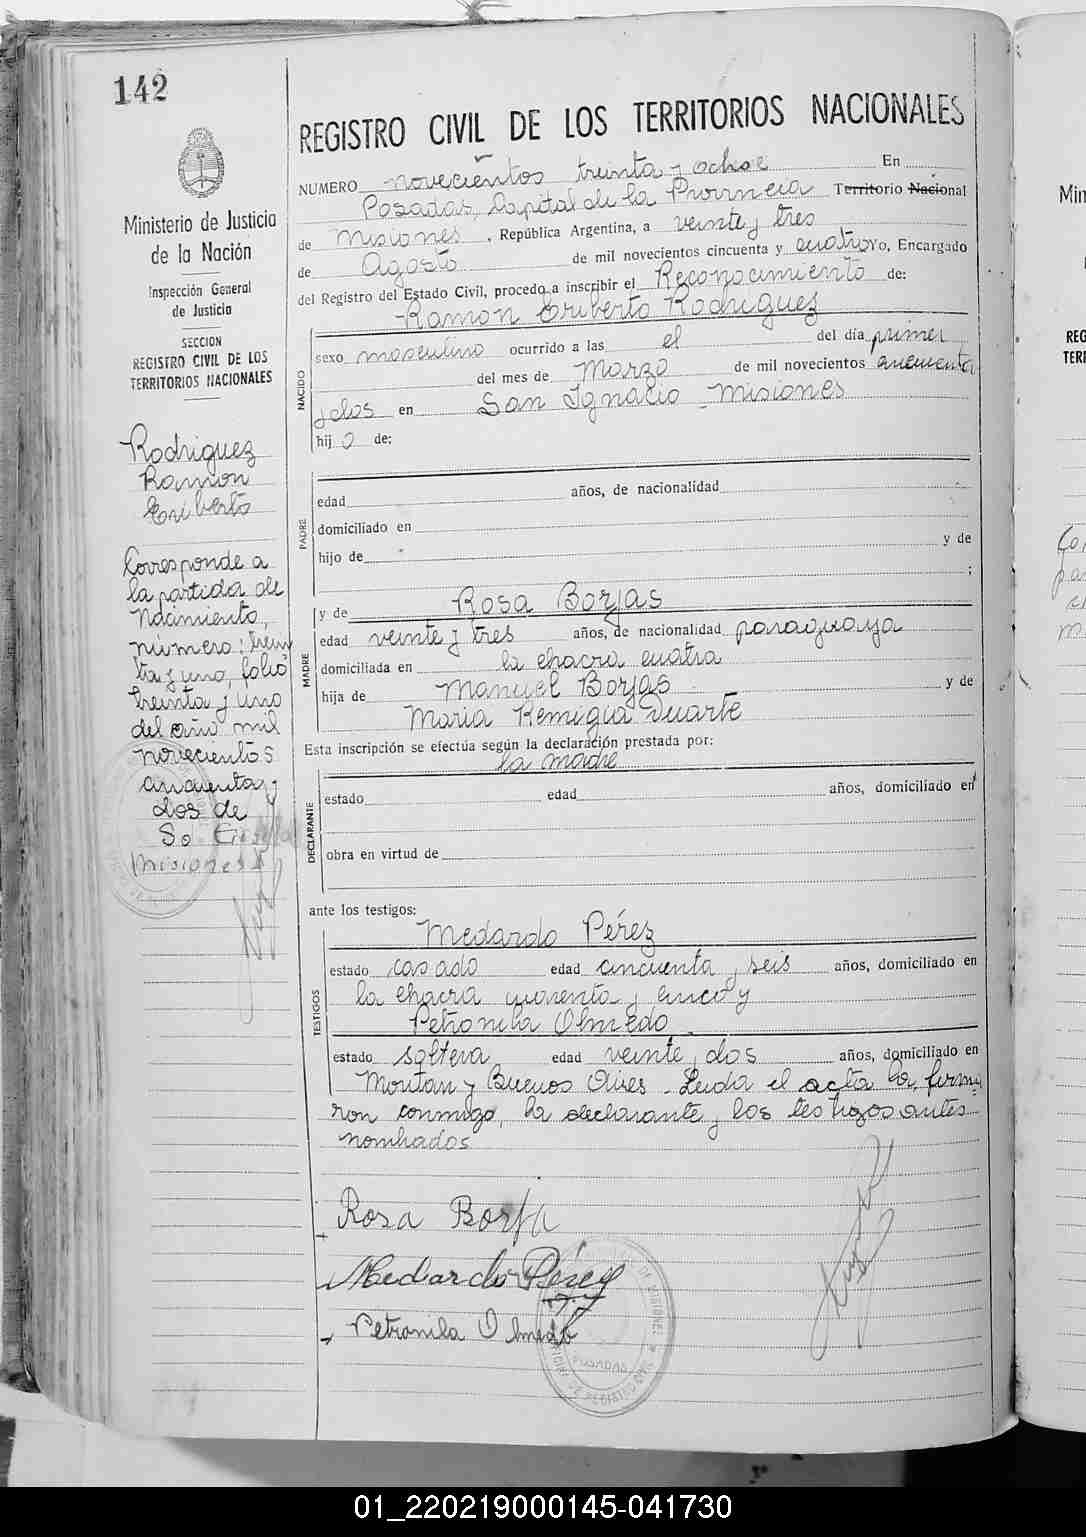 142
REGISTRO CIVIL DE LOS TERRITORIOS NACIONALES
Ministerio de Justicia
de la Nación
Inspección General
de Justicia
SECCION
REGISTRO CIVIL DE LOS
TERRITORIOS NACIONALES
Rodriguez
Ramon
Eriberto
Corresponde a
la partida de
Nacimiento,
número: trein
ta y uno, folio
treinta y uno
del año mil
novecientos
cincuenta y
dos de
Misiones
NUMERO novecientos treinta y ocho En
Posadas, Capital de la Provincia Territorio Nacional
de Misiones, República Argentina, a veinte y tres
de Agosto de mil novecientos cincuenta y cuatro Yo, Encargado
del Registro del Estado Civil, procedo a inscribir el Reconocimiento de:
Ramon Eriberto Rodriguez
NACIDO
sexo masculino ocurrido a las el del día primer
del mes de Marzo de mil novecientos cincuenta
y dos en San Ignacio - Misiones
hij o de:
PADRE
edad años, de nacionalidad
domiciliado en
hijo de y de
;
y de Rosa Borjas
MADRE
edad veinte y tres años, de nacionalidad paraguaya
domiciliada en la chacra cuatro
hija de Manuel Borjas y de
Maria Remigia Duarte
Esta inscripción se efectúa según la declaración prestada por:
la madre
DECLARANTE
estado edad años, domiciliado en
obra en virtud de
ante los testigos:
Medardo Pérez
TESTIGOS
estado casado edad cincuenta y seis años, domiciliado en
la chacra cuarenta y cinco y
Petronila Olmedo
estado soltera edad veinte y dos años, domiciliado en
y Buenos Aires. Leída el acta la firma
ron conmigo, la declarante y los testigos antes
nombrados
Rosa Borja
Medardo Pérez
Petronila Olmedo
POSADAS
01_220219000145-041730